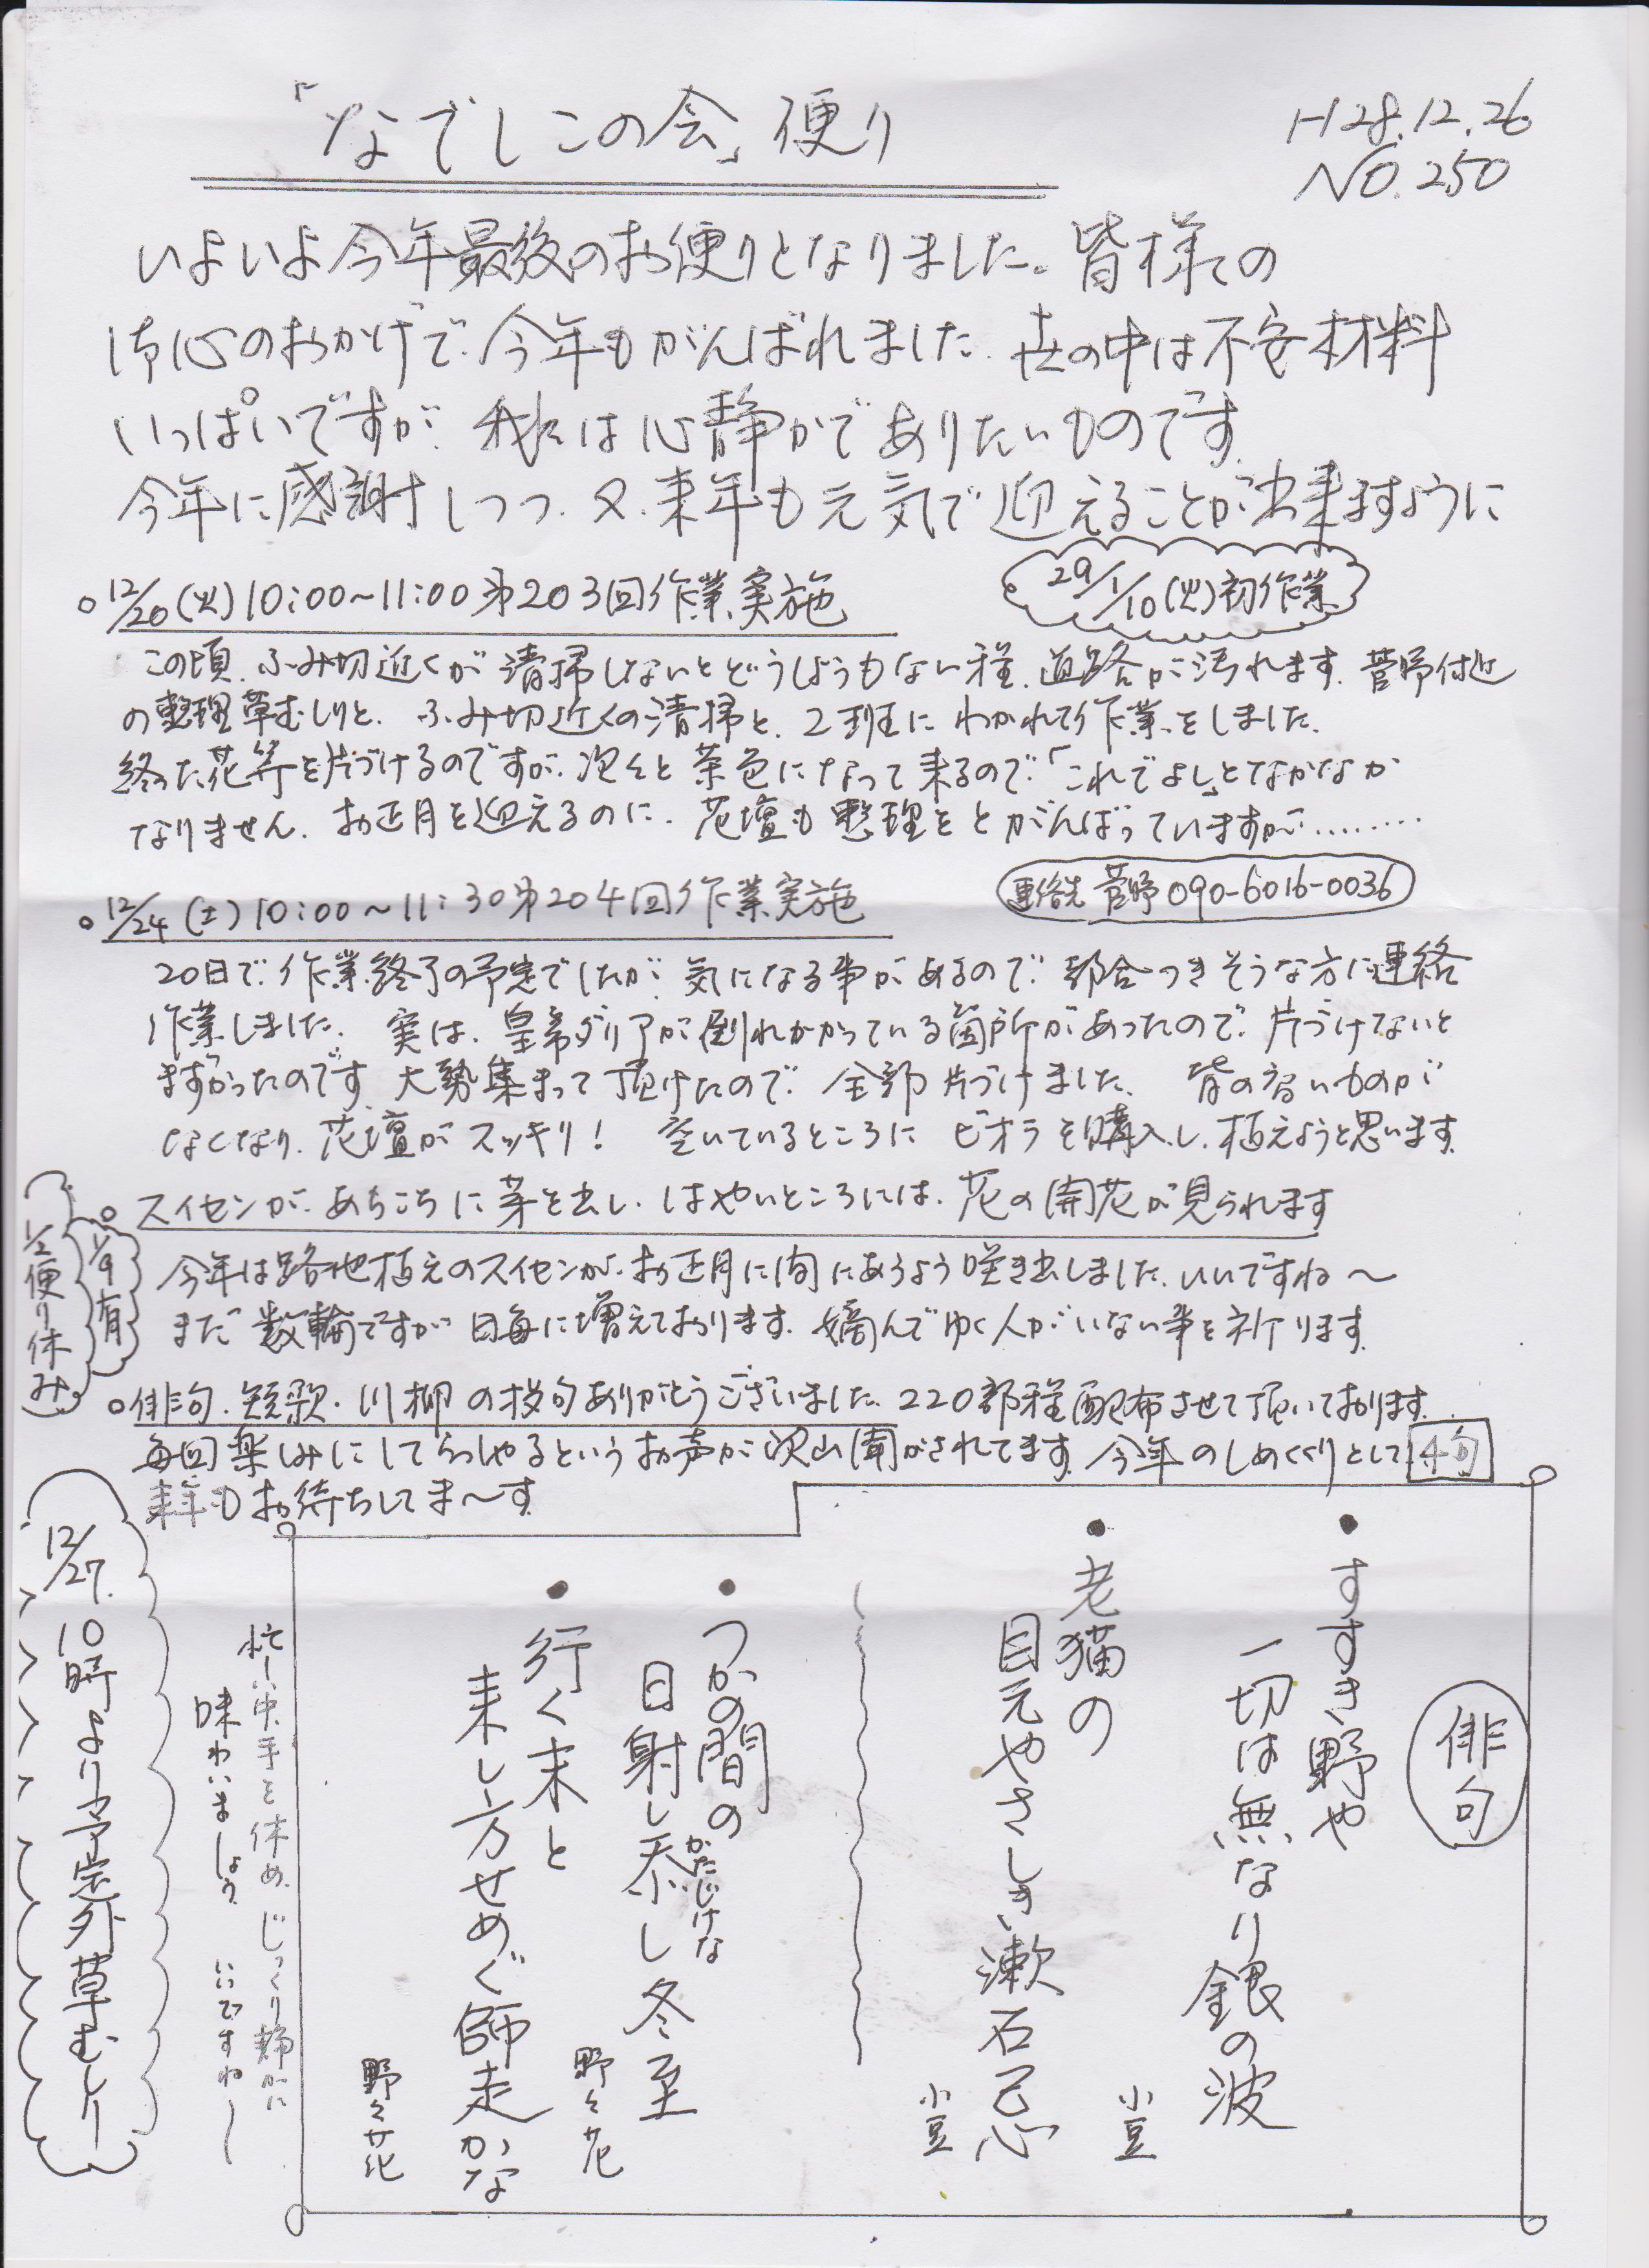 「なでしこの会」便り
H28.12.26
NO.250
いよいよ今年最後のお便りとなりました。皆様との
御心のおかげで、今年もがんばれました。世の中は不安材料
いっぱいですが、我々は心静かでありたいものです。
今年に感謝しつつ、又、来年も元気で迎えることが出来ますように
29/1/10(火)初作業
○12/20(火)10:00~11:00第203回作業実施
この頃、ふみ切近くが清掃しないとどうしようもない程、道路が汚れます。菅野付近
の整理草むしりと、ふみ切近くの清掃と、2班にわかれて作業をしました。
終った花等を片づけるのですが、次々と茶色になって来るので、「これでよし」となかなか
なりません。お正月を迎えるのに、花壇も整理をとがんばっていますが………
連絡先 菅野090-6016-0036
○12/24(土)10:00~11:30第204回作業実施
20日で、作業終了の予定でしたが、気になる事があるので、都合つきそうな方に連絡
作業しました。実は、皇帝ダリアが倒れかかっている箇所があったので、片づけないと
まずかったのです。大勢集まって頂けたので、全部片づけました。背の高いものが
なくなり、花壇がスッキリ! 空いているところにビオラを購入し、植えようと思います。
○スイセンが、あちこちに芽を出し、はやいところには、花の開花が見られます
今年は路地植えのスイセンが、お正月に間にあうよう咲き出しました。いいですね~
まだ数輪ですが日毎に増えております。摘んでゆく人がいない事を祈ります。
1/2便り休み
1/9有
○俳句、短歌・川柳の投句ありがとうございました。220部程配布させて頂いております。
毎回楽しみにしてらっしゃるというお声が沢山聞かされてます。今年のしめくくりとして4句
来年もお待ちしてま~す。
俳句
・すすき野や
一切は無なり銀の波
小豆
・老猫の
目元やさしき漱石忌
小豆
・つかの間の
日射し忝し冬至
かたじけな
野々花
・行く末と
来し方せめぐ師走かな
野々花
忙しい中、手を休め、じっくり静かに
味わいましょう。いいですね~
12/27 10時より予定外草むしり